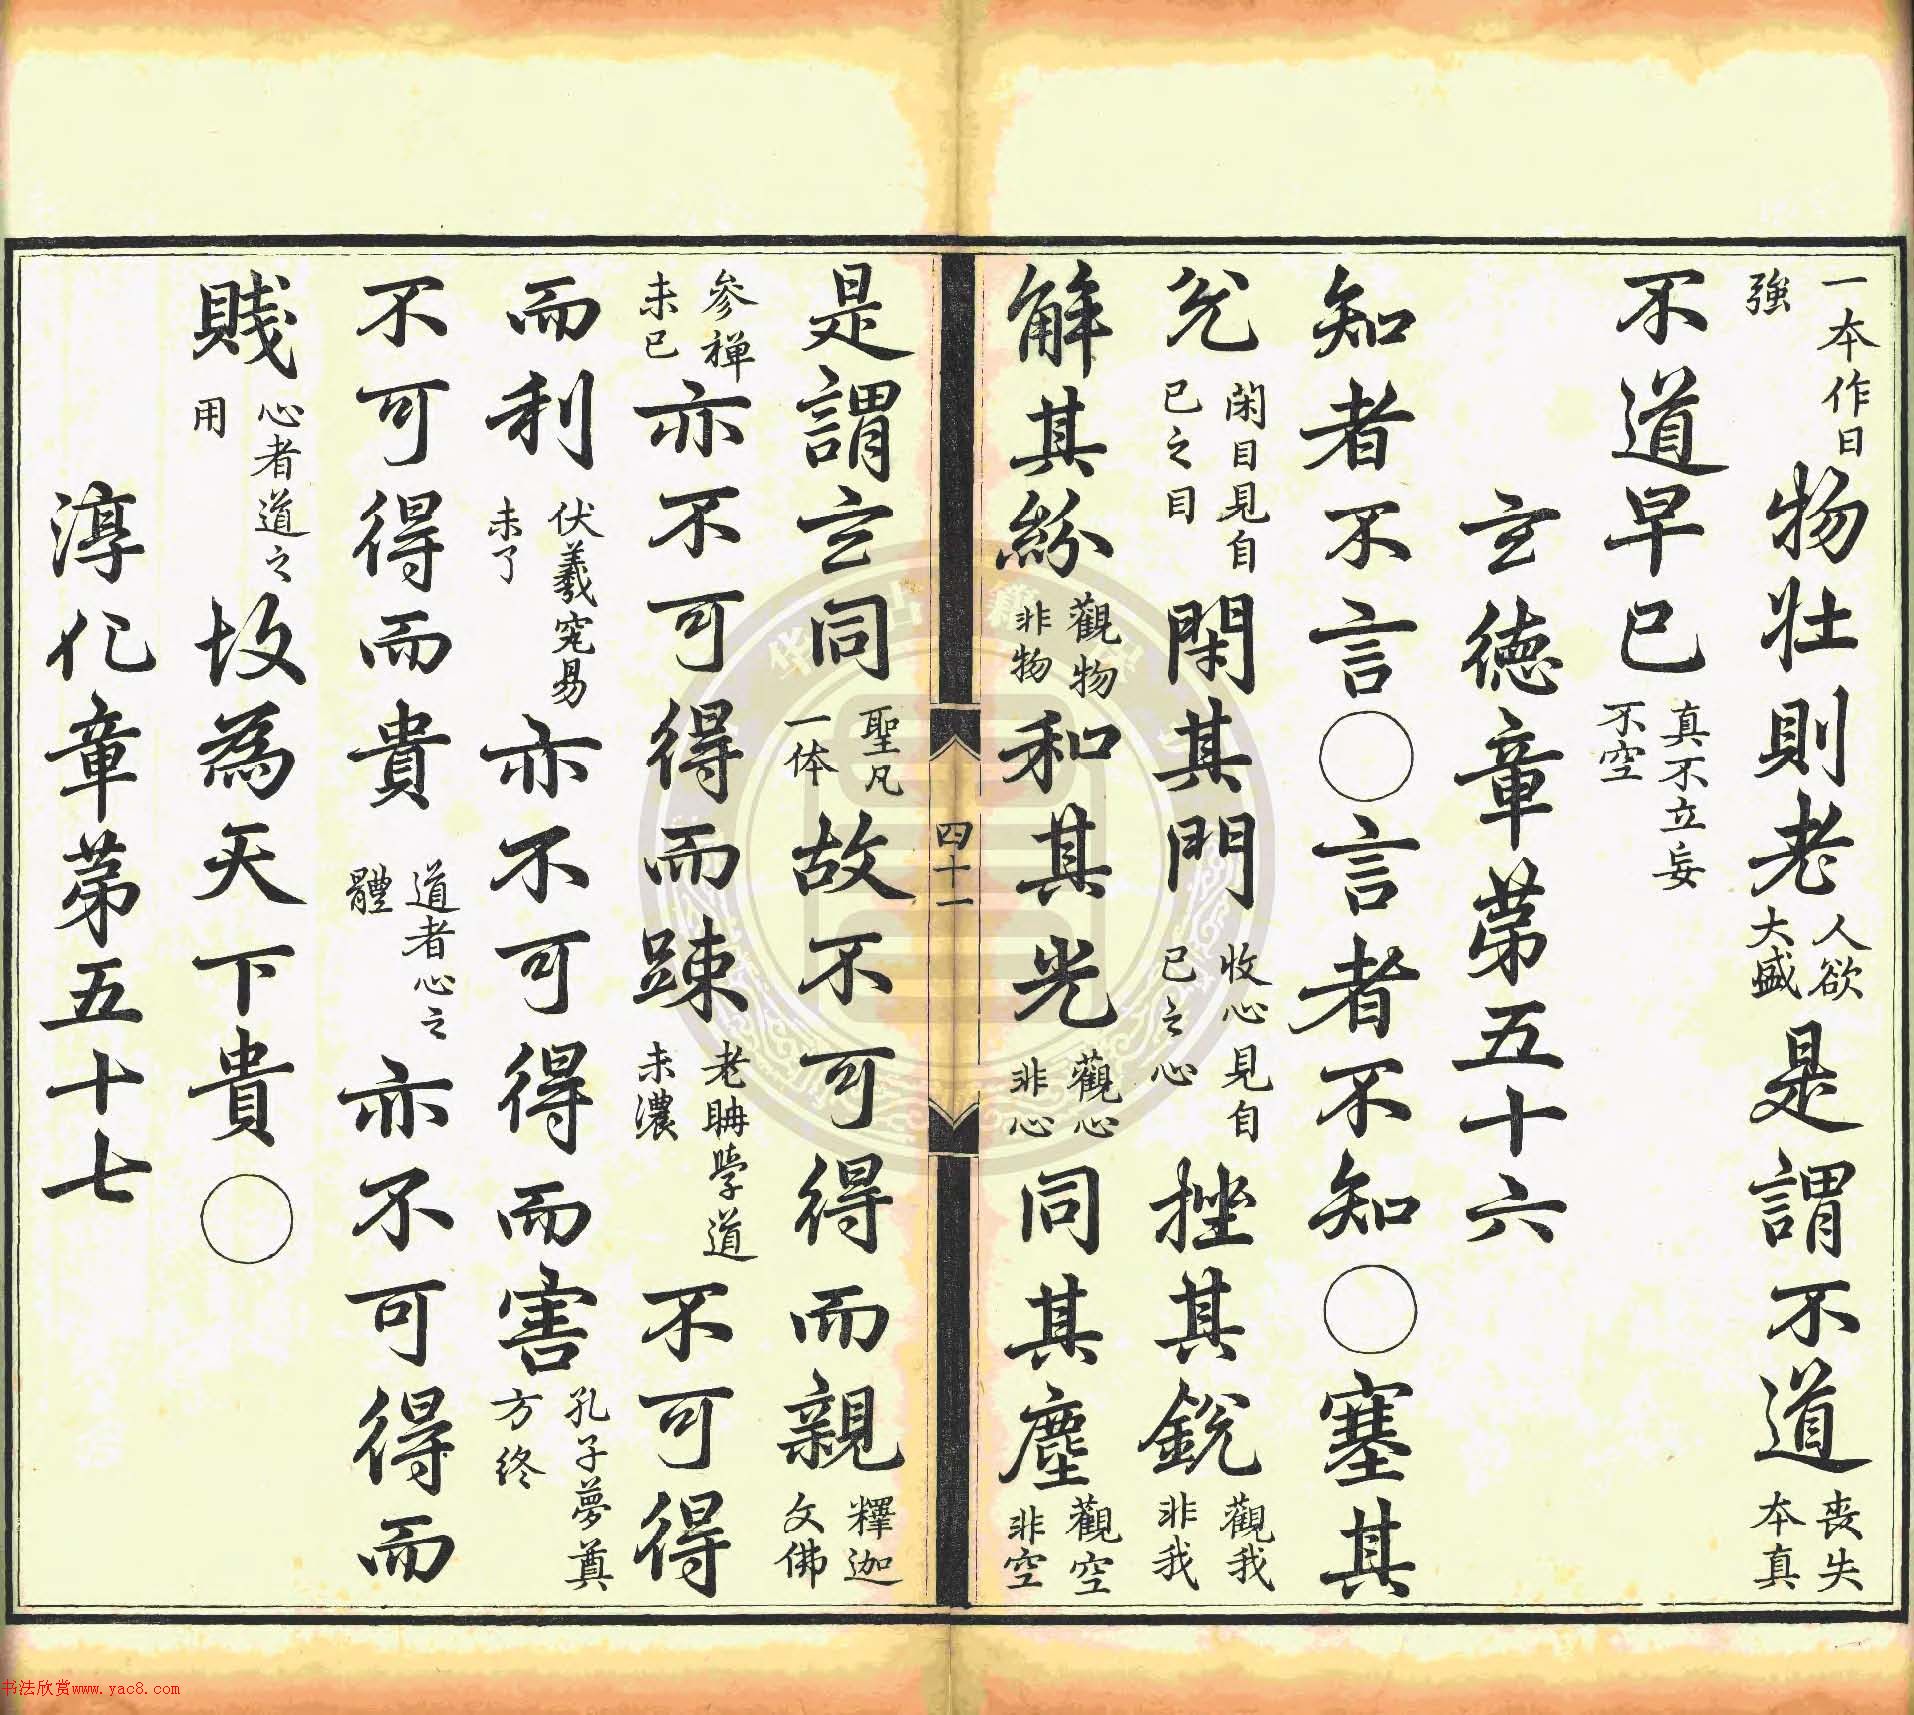 一本作日強物壯則老人欲大盛是謂不道喪失本真
不道早已真不立妄不空
玄德章第五十六
知者不言○言者不知○塞其
兊閉目見自己之目閉其門收心見自己之心挫其銳觀我非我
解其紛觀物非物和其光觀心非心同其塵觀空非空
四十一
是謂玄同聖凡一体故不可得而親釋迦文佛
參禅未已亦不可得而踈老聃學道未濃不可得
而利伏羲究易未了亦不可得而害孔子夢奠方終
不可得而貴道者心之體亦不可得而
賤心者道之用故為天下貴○
淳化章第五十七
书法欣赏www.yac8.com